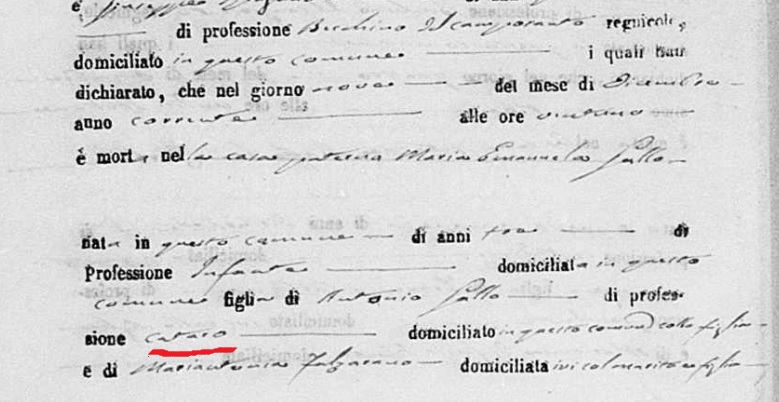 e Giuseppe
di professione Becchino del camposanto regnicolo,
domiciliato in questo comune i quali han
dichiarato, che nel giorno nove del mese di Dicembre
anno corrente alle ore ventuno
è mort, nella casa paterna Maria Emanuela Gallo
nata in questo comune di anni tre di
Professione Infante domiciliata in questo
comune figlia di Antonio Gallo di profes-
sione domiciliato in questo comune colla figlia
e di Mariantonia domiciliata ivi col marito e figlia